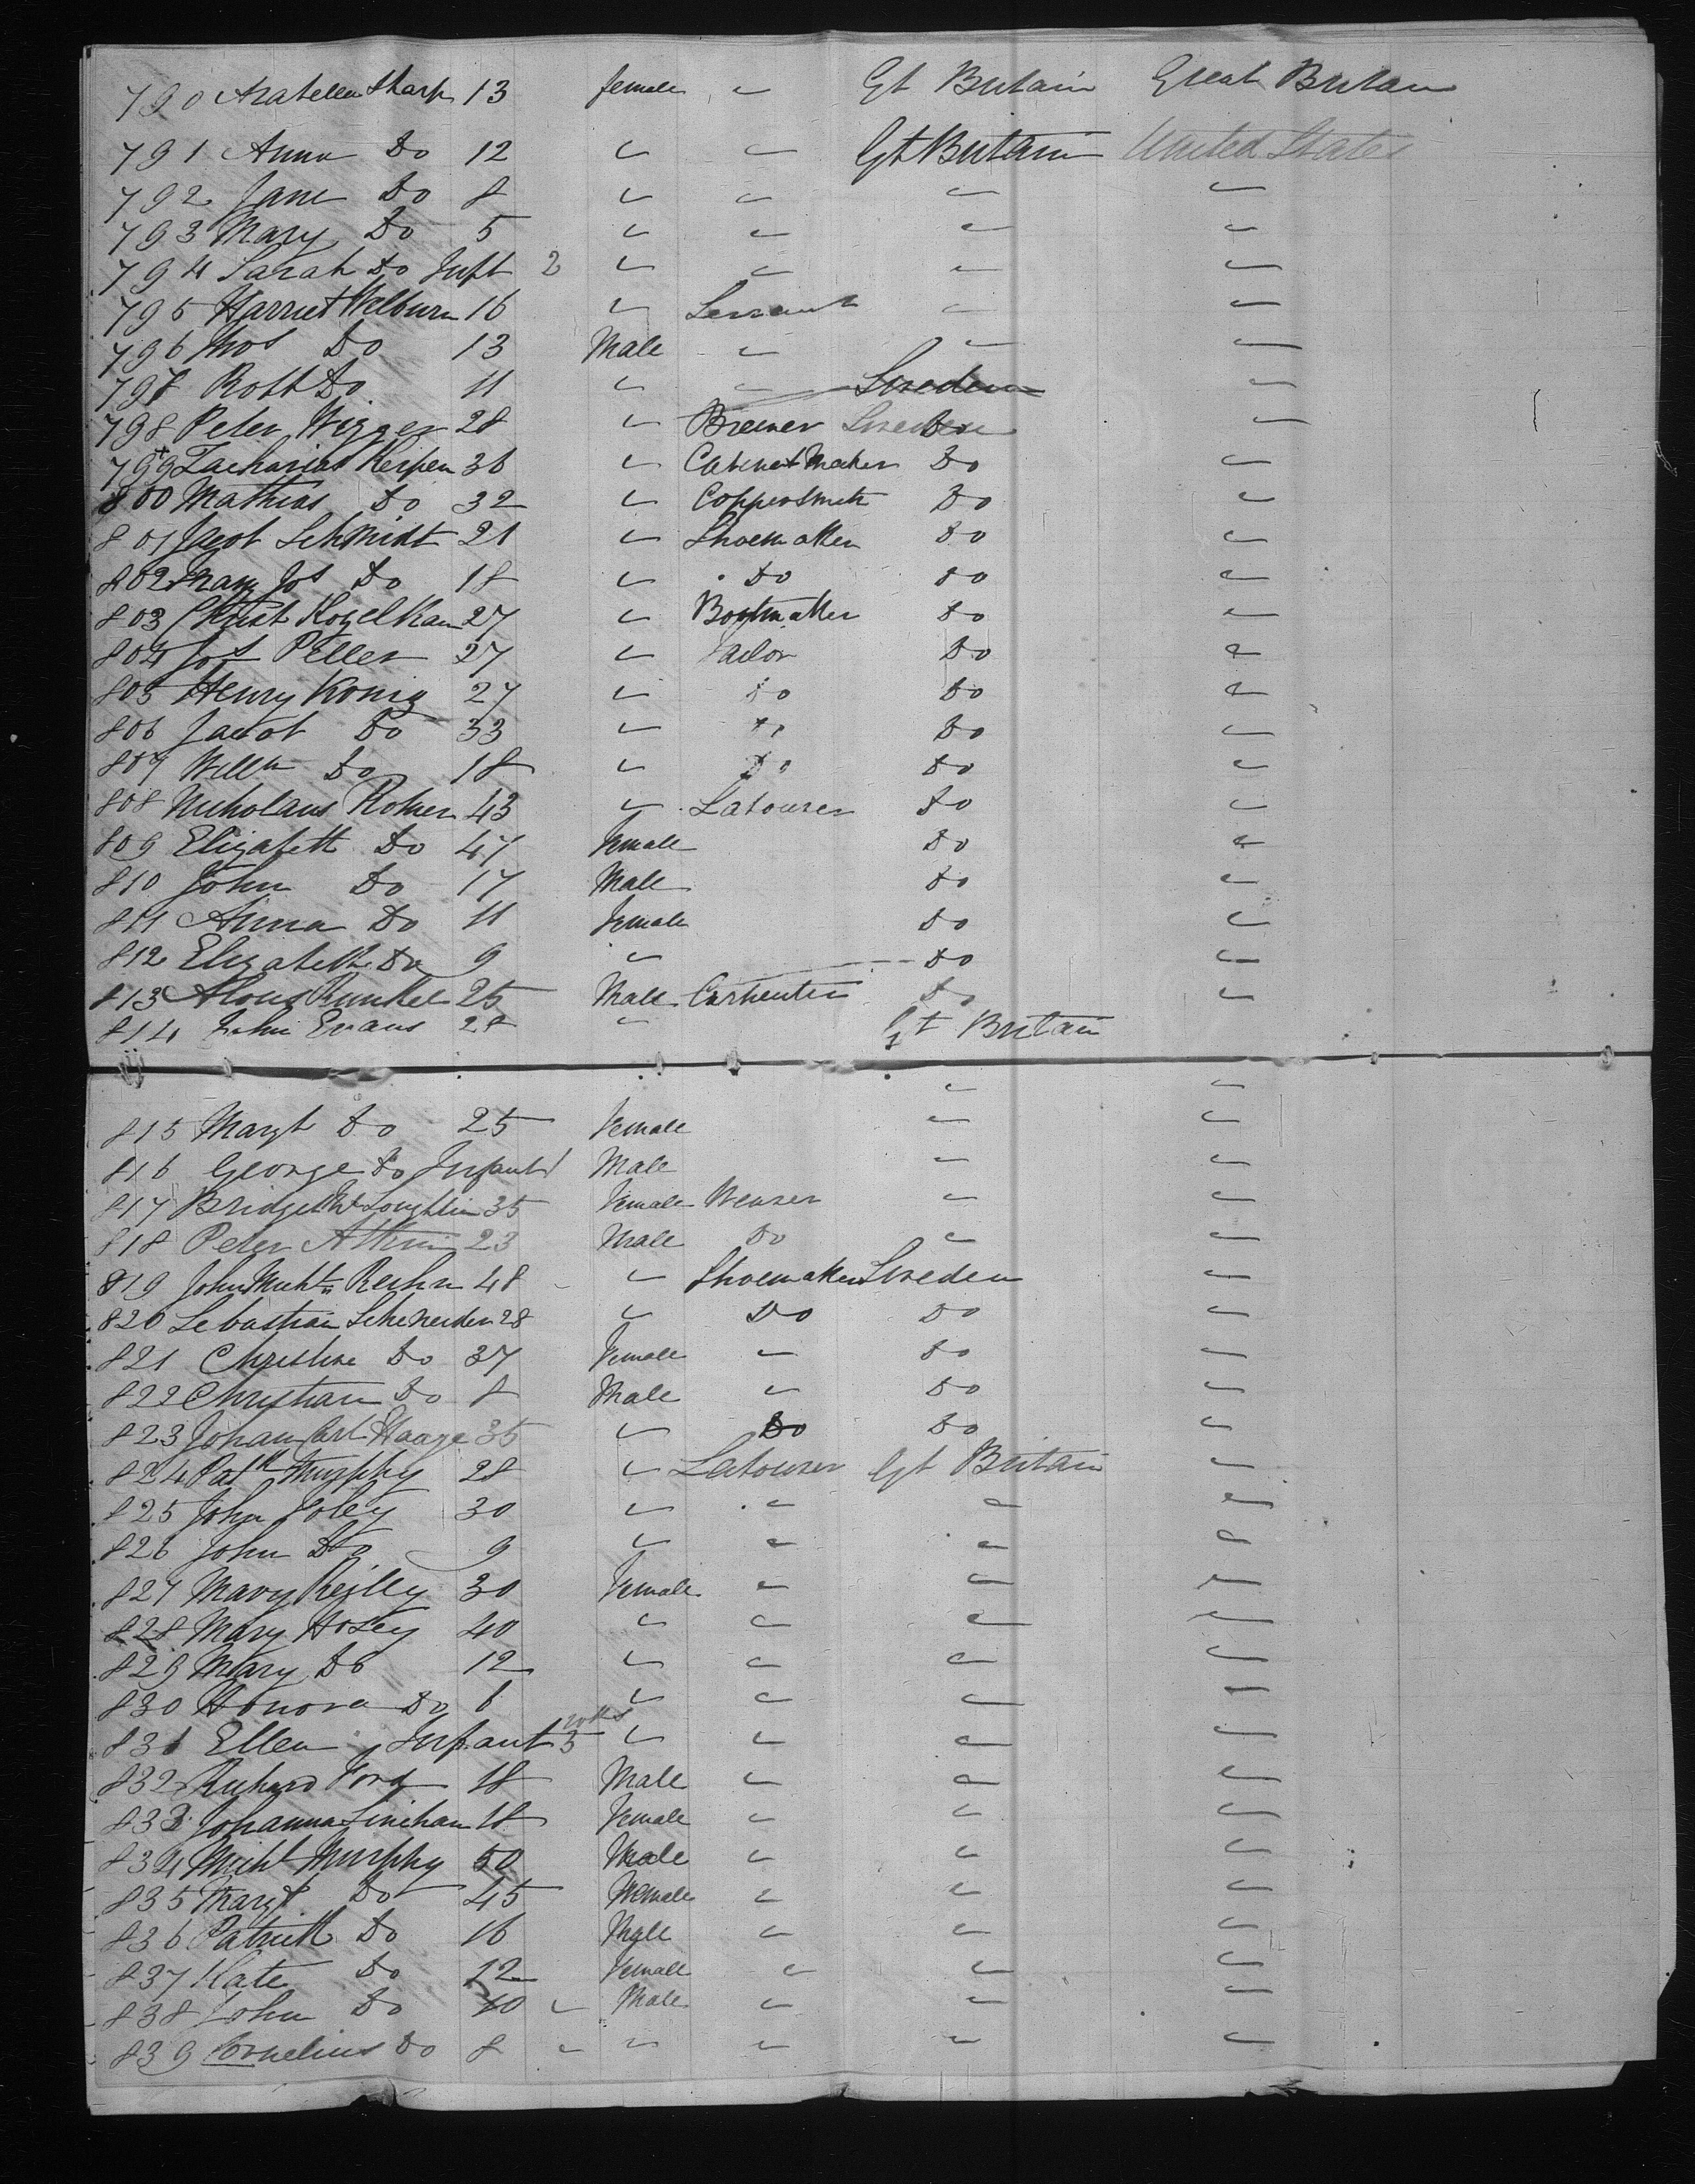 790 Arabella Sharp 13 female " Gt Britain Great Britain
791 Anna Do 12 " " Gt Britain United States
792 Jane Do 8 " " " "
793 Mary Do 5 " " " "
794 Sarah Do Inft 2 " " " "
795 Harriet Welburn 16 " Servant " "
796 Thos Do 13 Male " " "
797 Robt Do 11 " " Sweden "
798 Peter Wigger 28 " Brewer Sweden Do "
799 Zacharias Kerpen 36 " Cabinet Maker Do "
800 Mathias Do 32 " Coppersmith Do "
801 Jacob Schmidt 21 " Shoemaker Do "
802 Jos Do 18 " Do Do "
803 Christ 27 " Bootmaker Do "
804 Jos Peller 27 " Tailor Do "
805 Henry Konig 27 " Do Do "
806 Jacob Do 33 " Do Do "
807 Willm Do 18 " Do Do "
808 Nicholaus 43 " Labourer Do "
809 Elizabeth Do 47 Female Do "
810 John Do 17 Male Do "
811 Anna Do 11 Female Do "
812 Elizabeth Do 9 " Do "
813 Alous Runkel 25 Male Carpenter Do "
814 John Evans 28 " Gt Britain
" "
815 Margt Do 25 Female " "
816 George Do Infant 1 Male " "
817 Bridget McLoughlin 35 Female Weaver " "
818 Peter 23 Male Do " "
819 John Michl 48 " " Shoemaker Sweden "
820 Sebastian Schneider 28 " Do Do "
821 Christine Do 37 Female " Do "
822 Christian Do 8 Male " Do "
823 Johan Carl Haage 35 " Do Do "
824 Patk Murphy 28 " Labourer Gt Britain "
825 John Foley 30 " " " "
826 John Do 9 " " " "
827 Mary Reilly 30 Female " " "
828 Mary Hosey 40 " " " "
829 Mary Do 12 " " " "
830 Honora Do 6 " " " "
831 Ellen Infant 3 wks " " " "
832 Richard Ford 18 Male " " "
833 Johanna Linehan 18 Female " " "
834 Michl Murphy 50 Male " " "
835 Margt Do 45 Female " " "
836 Patrick Do 16 Male " " "
837 Kate Do 12 Female " " "
838 John Do 10 " Male " " "
839 Cornelius Do 8 " " " " "